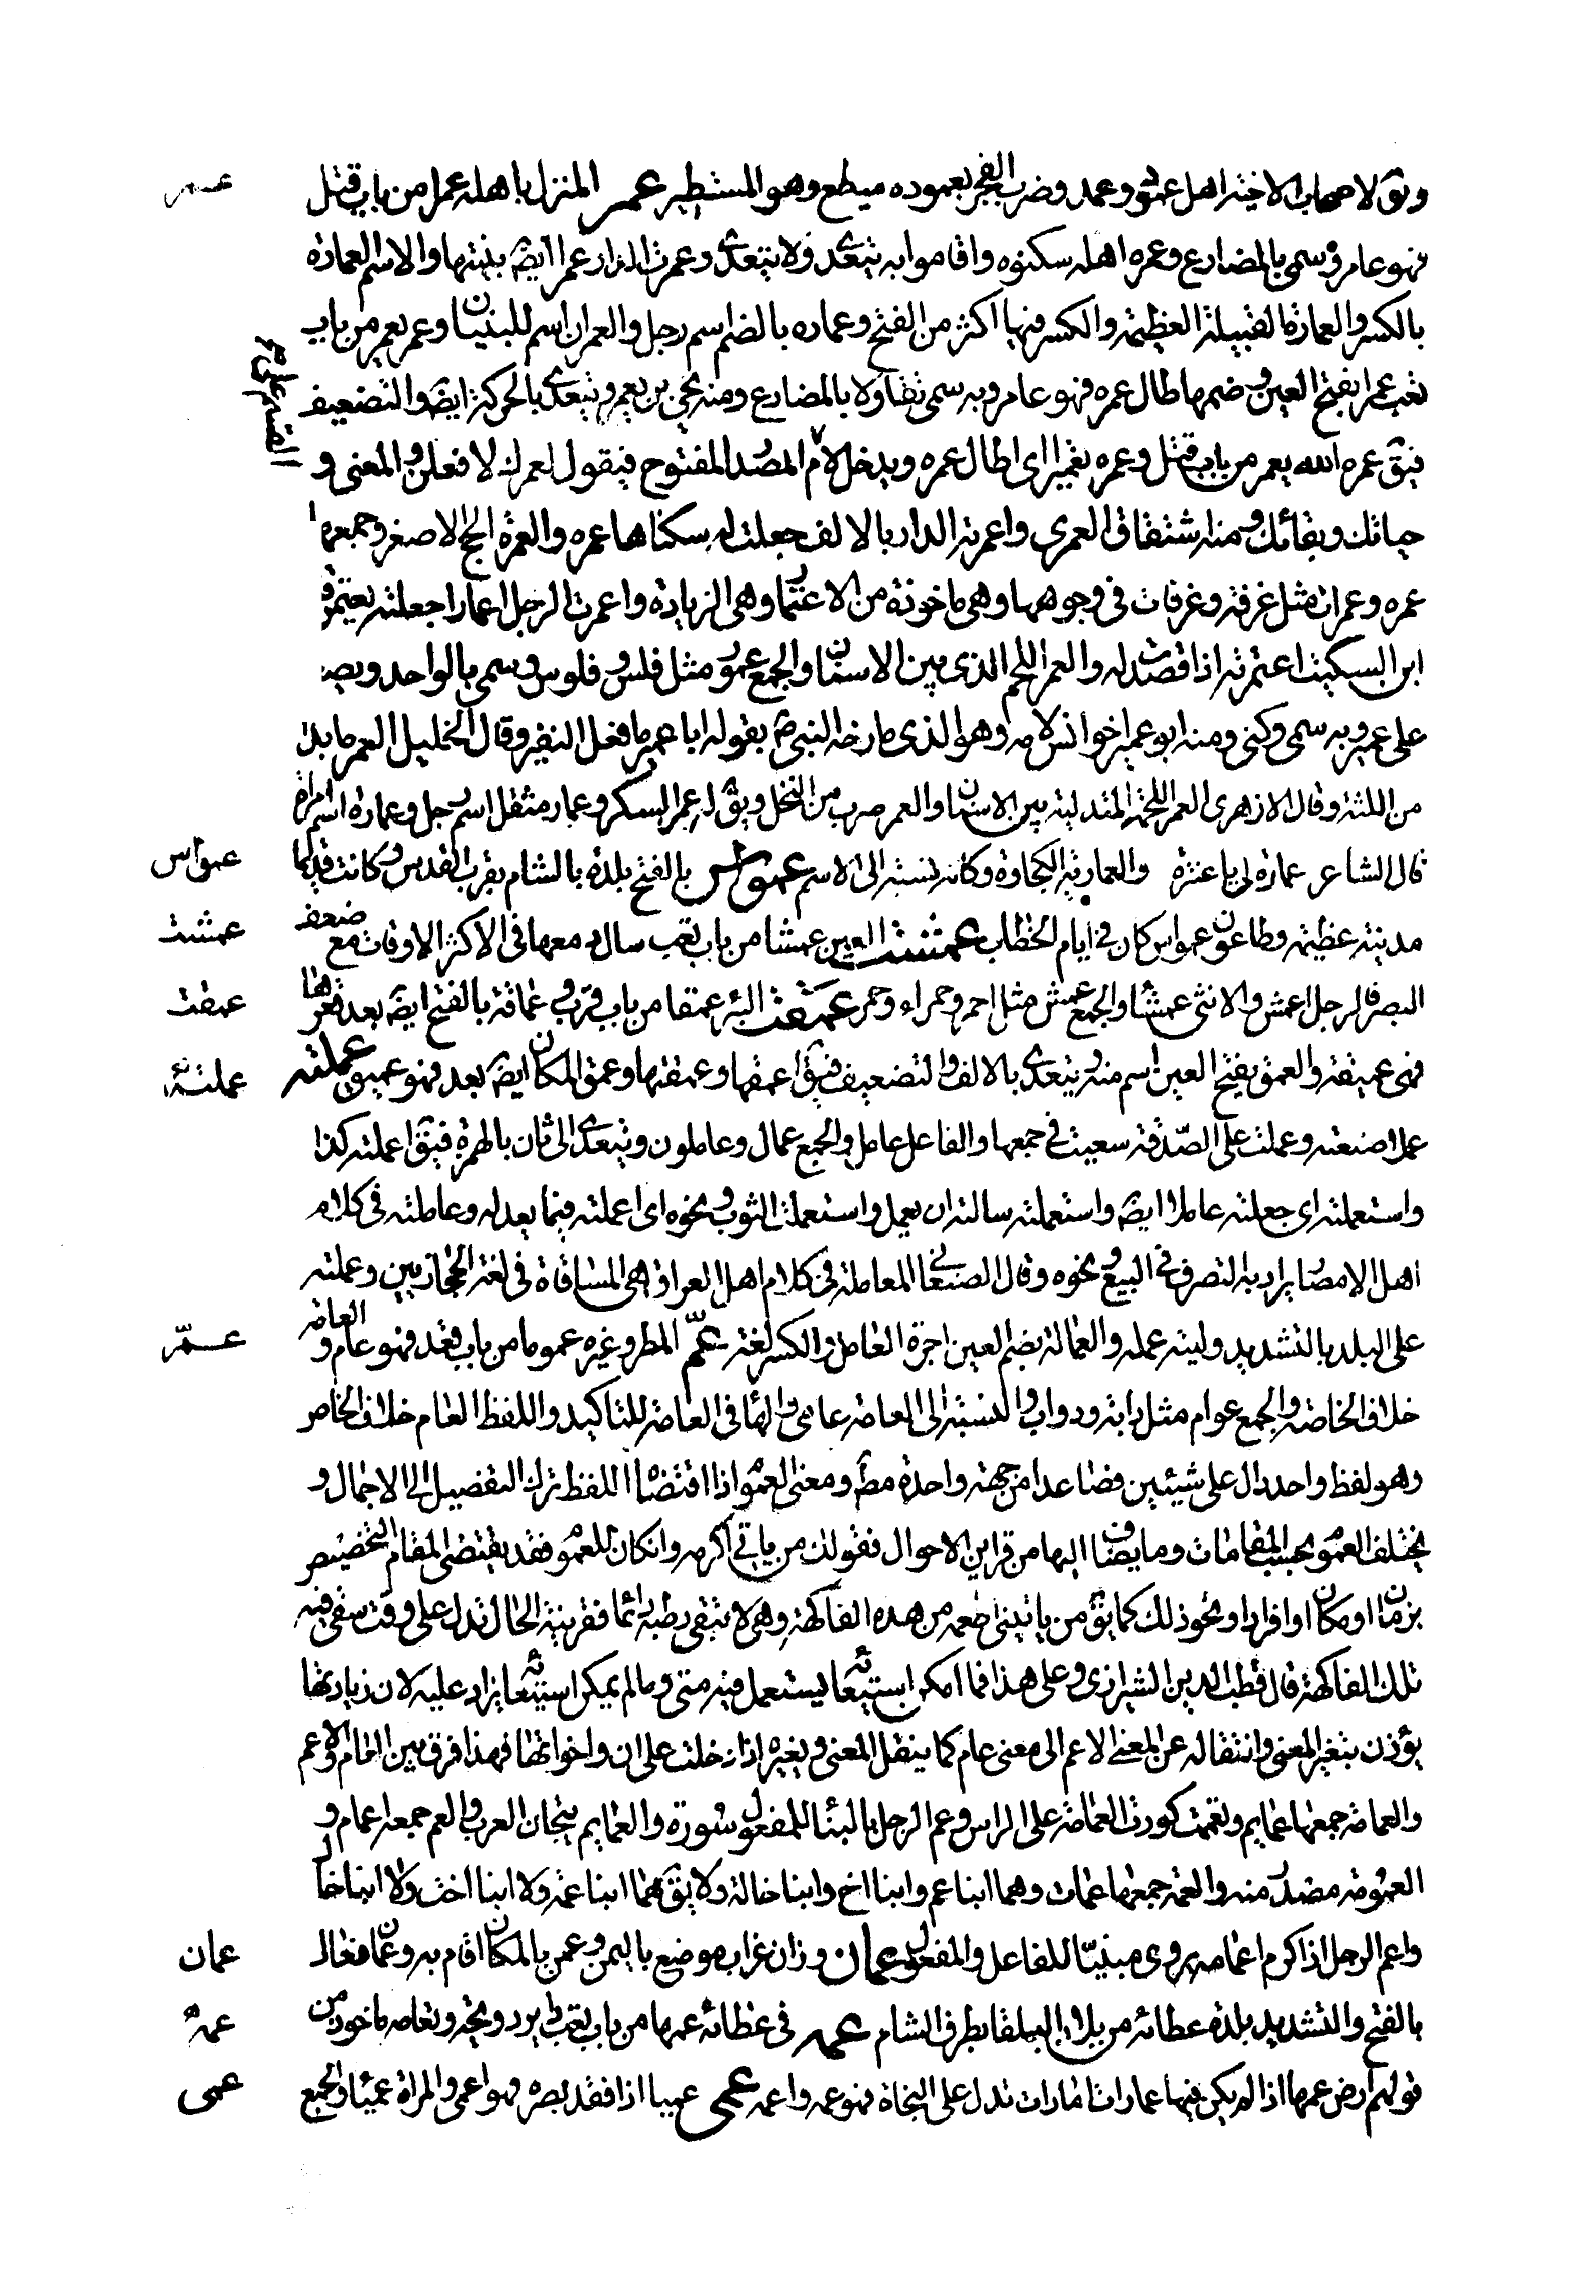 ويق لاصحاب الاخبية اهل عمود وعمد وضرب الفجر بعموده سطع وهو المستطير عمر المنزل باهله عمرا من باب قتل
فهو عامر وسمى بالمضارع وعمره اهله سكنوه واقاموا به يتعدى ولا يتعدى وعمرت الدار عمرا ايضا بنيتها والاسم العمارة
بالكسر والعمارة القبيلة العظيمة والكسر فيها اكثر من الفتح وعماره بالضم اسم رجل والعمران اسم للبنيان وعمر يعمر من باب
تعب عمرا بفتح العين وضمها طال عمره فهو عامر وبه سمى تفاولا بالمضارع ومنه يحيى بن يعمر ويتعدى بالحركة ايضا والتضعيف
فيق عمره الله يعمره من باب قتل وعمره تعميرا اى اطال عمره ويدخل لام القسم على المصدر المفتوح فيقول لعمرك لافعلن والمعنى و
حياتك وبقائك ومنه اشتقاق العمرى واعمرته الدار بالالف جعلت له سكناها عمره والعمرة الحج الاصغر وجمعها
عمر وعمرات مثل غرفة وغرفات فى وجوهها وهى ماخوذة من الاعتمار وهى الزيادة واعمرت الرجل اعمارا جعلته يعتمر و
ابن السكيت اعتمرته اذا قصدت له والعمر اللحم الذى بين الاسنان والجمع عمور مثل فلس وفلوس وسمى بالواحد ويصغر
على عمير وبه سمى وكنى ومنه ابو عمير اخو انس لامه وهو الذى مازحه النبى ص بقوله ابا عمير ما فعل النغير وقال الخليل العمر ما بدا
من اللثة وقال الازهرى العمر اللحمة المتدلية بين الاسنان والعمر ضرب من النخل ويق له عمر السكر وعمار مثقل اسم رجل وعمارة اسم امراة
قال الشاعر عمارة لى يا عنزة والعمارية الكجاوة وكانه نسبة الى الاسم عمواس بالفتح بلدة بالشام بقرب القدس وكانت قديما
مدينة عظيمة وطاعون عمواس كان فى ايام الخطاب عمشت العين عمشا من باب تعب سال دمعها فى الاكثر الاوقات مع ضعف
البصر فالرجل اعمش والانثى عمشاء والجمع عمش مثل احمر وحمراء وحمر عمقت البئر عمقا من باب قرب وعماقة بالفتح ايضا بعد قعرها
فهى عميقة والعمق بفتح العين اسم منه ويتعدى بالالف والتضعيف فيق اعمقها وعمقتها وعمق المكان ايضا بعد فهو عميق عملته
عملا صنعته وعملت على الصدقة سعيت فى جمعها والفاعل عامل والجمع عمال وعاملون ويتعدى الى ثان بالهمزة فيق اعملته كذا
واستعملته اى جعلته عاملا ايضا واستعملته سالته ان يعمل واستعملت الثوب ونحوه اى اعملته فيما يعد له وعاملته فى كلام
اهل الامصار يراد به التصرف فى البيع ونحوه وقال الصغانى المعاملة فى كلام اهل العراق هى المساقاة فى لغة الحجازيين وعملته
على البلد بالتشديد وليته عمله والعمالة بضم العين اجرة العامل والكسر لغة عم المطر وغيره عموما من باب قعد فهو عام والعامة
خلاف الخاصة والجمع عوام مثل دابة ودواب والنسبة الى العامة عامى والهاء فى العامة للتاكيد واللفظ العام خلاف الخاص
وهو لفظ واحد دال على شيئين فصاعدا من جهة واحدة مطم ومعنى العموم اذا اقتضاه اللفظ ترك التفصيل الى الاجمال و
يختلف العموم بحسب المقامات وما يضاف اليها من قراين الاحوال فقولك من ياتى اكرمه وانكان للعموم فقد يقتضى المقام التخصيص
بزمان او مكان او افراد ونحو ذلك كما يق من ياتينى اطعمه من هذه الفاكهة وهى لا تبقى رطبة دائما فقرينة الحال تدل على وقت سقى فيه
تلك الفاكهة قال قطب الدين الشيرازى وعلى هذا فما امكن استيعابه يستعمل فيه متى وما لم يمكن استيعابه يزاد عليه لان زيادتها
يؤذن بتغير المعنى وانتقاله عن المعنى الاعم الى معنى عام كما ينقل المعنى وتغيره اذا دخلت على ان واخواتها فهذا فرق بين العام والاعم
والعمامة جمعها عمايم وتعممت كورت العمامة على الراس وعمم الرجل بالبناء للمفعول سود والعمايم تيجان العرب والعم جمعه اعمام و
العمومة مصدر منه والعمة جمعها عمات وهما ابنا عم وابنا اخ وابنا خالة ولا يق هما ابنا عمة ولا ابنا اخت ولا ابنا خال
واعم الرجل اذا كرم اعمامه يروى مبنيا للفاعل والمفعول عمان وزان غراب موضع باليمن وعمن بالمكان اقام به وعمان فعال
بالفتح والتشديد بلدة من بلاد البلقا بطرف الشام عمه فى عمها من باب تعب تردد وتعامه ماخوذ من
قولهم ارض عمها اذا لم يكن فيها عمارات امارات تدل على النجاة فهو عمه واعمه عمى عميا اذا فقد بصره فهو اعمى والمراة عمياء والجمع
عمر
القسم على
عمواس
عمشت
عمقت
عملته
عم
عمان
عمه
عمى